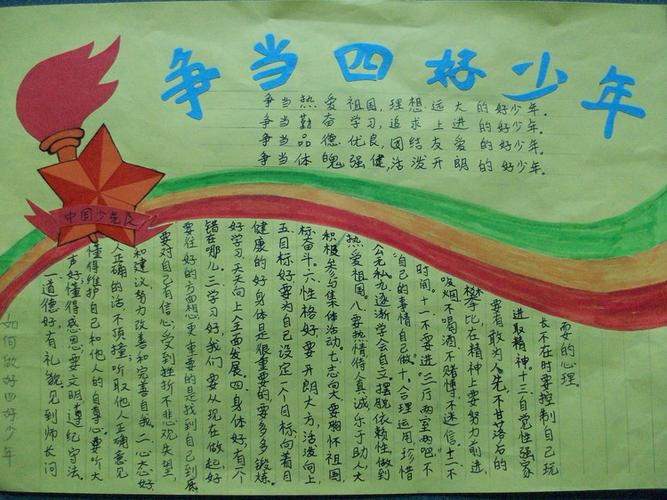 争当四好少年
争当热爱祖国,理想远大的好少年。
争当勤奋学习,追求上进的好少年。
争当品德优良,团结友爱的好少年。
争当体魄强健,活泼开朗的好少年。
中国少先队
如何做好四好少年
一道德好有礼貌,见到师长问
声好懂得感恩要文明遵纪守法
懂得维护自己和他人的自尊心要听大
人正确的话不顶撞听取他人正确意见
和建议努力改善和完善自我二心态好
要对自己有信心受到挫折不悲观失望,
要往好的方面想更重要的是找到自己到底
错在哪儿三学习好,我们要从现在做起好
好学习天天向上全面发展四身体好有一个
健康的好身体是很重要的要多多锻炼。
五目标好要为自己设定一个目标向着目
标奋斗。六性格好要开朗大方,活泼向上
积极参与集体活动七志向大要胸怀祖国,
热爱祖国八要热情待人真诚乐于助人大
公无私九逐渐学会自立摆脱依赖性做到
"自己的事情自己做"十,合理运用珍惜
时间十一不要进"三厅两室两吧"不
吸烟不喝酒不赌博不迷信,十二不
攀比,在精神上要努力前进,
要有敢为人先不甘落后的
进取精神。十三自觉性强家
长不在时要控制自己玩
耍的心理。